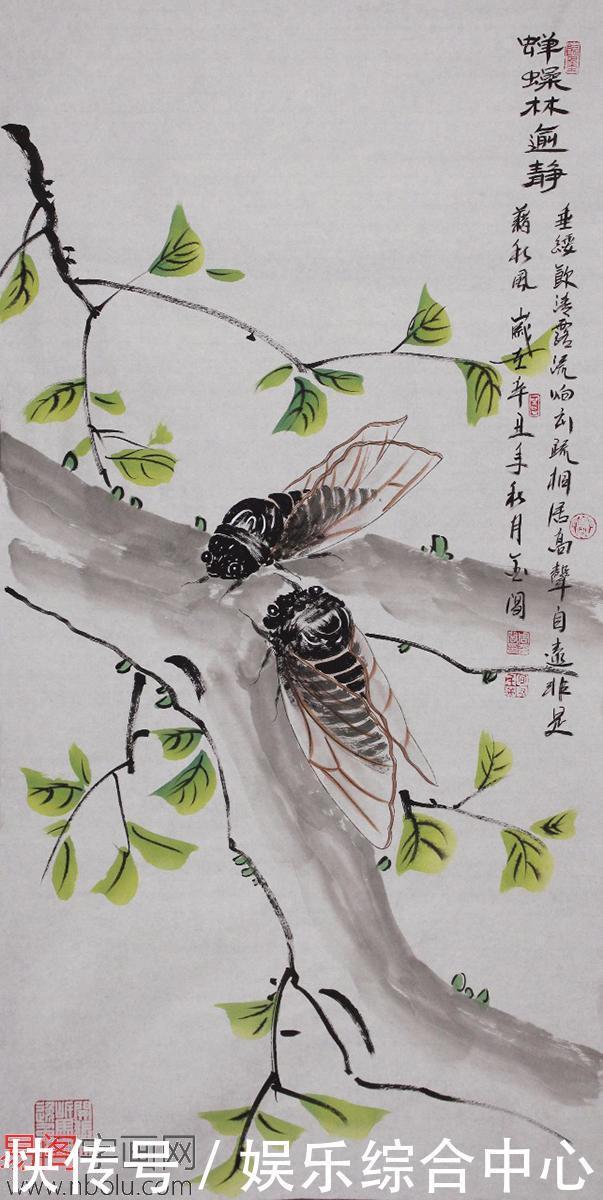 蝉噪林逾静
垂緌飲清露流响出疏桐居高聲自遠非是
藉秋風 歲在辛丑年秋月
易阁字画网
www.nbolu.com
快传号 / 娱乐综合中心